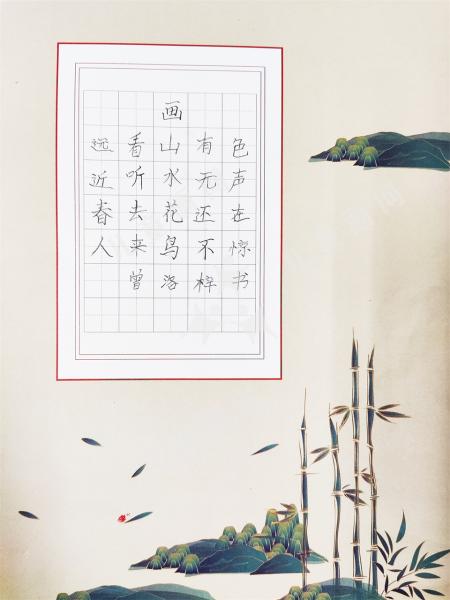 画
远看山有色
近听水无声
春去花还在
人来鸟不惊
曾洛梓书